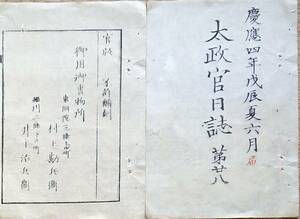 慶應四年戊辰夏六月
太政官日誌 第廿八
官版 不許翻刻
御用御書物所
東洞院三條上ル町
村上勘兵衞
堀川二條下ル町
井上治兵衞